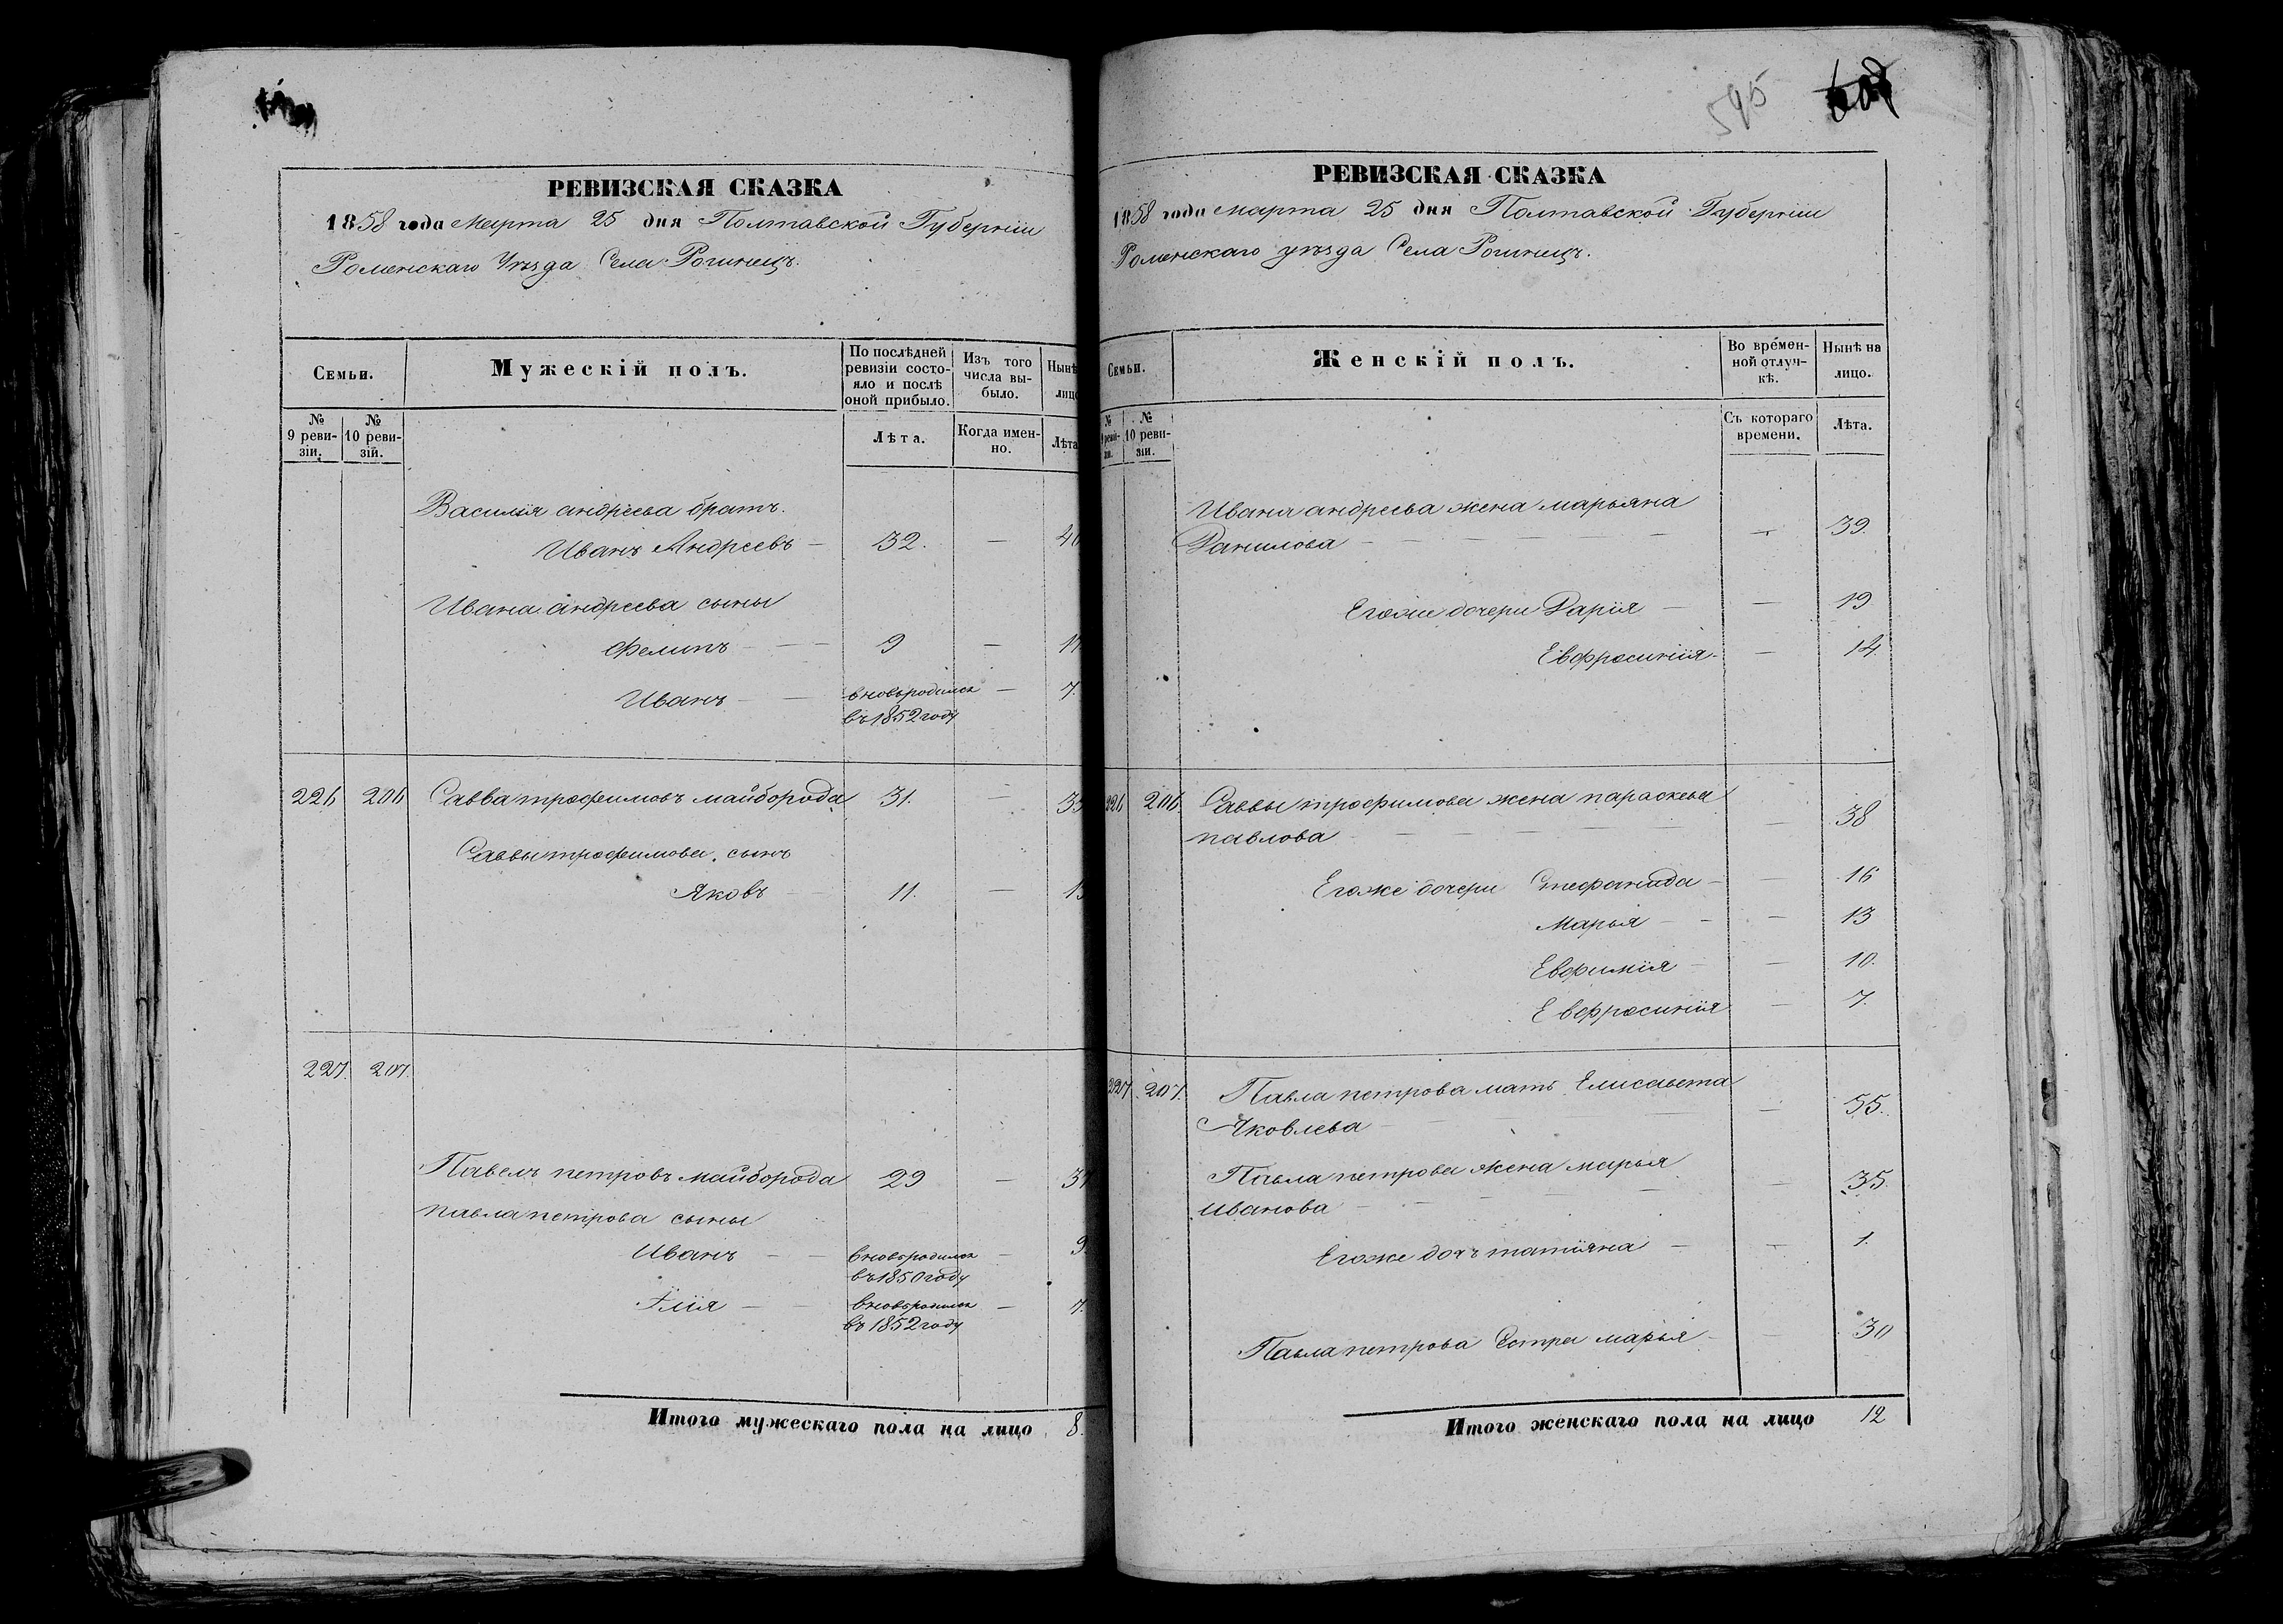 РЕВИЗСКАЯ СКАЗКА
1858 года Марта 25 дня Полтавской Губерніи
Роменскаго Уѣзда Села Рогинецъ.
Семьи.
Мужескій полъ.
По послѣдней ревизіи состояло и послѣ оной прибыло.
Изъ того числа выбыло.
Нынѣ
лицо
№ 9 ревизіи.
№ 10 ревизій.
Лѣта.
Когда именно.
Лѣта
Василія андреева братъ.
Иванъ Андреевъ — 32. — 40
Ивана андреева сыны
Фелипъ — 9 — 17
Иванъ — вновьродился — 7.
въ 1852 году
226 206 Савва трофимовъ майборода 31. —
Саввы трофимова сынъ
Яковъ — 11. —
227. 207.
Павелъ петровъ майборода 29 —
павла петрова сыны
Иванъ — вновьродился — 9
въ 1850 году
Илія — вновьродился — 7.
въ 1852 году
Итого мужескаго пола на лицо 8.
595
РЕВИЗСКАЯ СКАЗКА
1858 года марта 25 дня Полтавской Губерніи
Роменскаго уѣзда Села Рогинецъ.
Семьи.
Женскій полъ.
Во временной отлучкѣ.
Нынѣ на лицо.
№ 9 ревизіи.
№ 10 ревизіи.
Съ котораго времени.
Лѣта.
Ивана андреева жена марьяна
Данилова — — 39.
Егоже дочери Дарія — — 19
Евфросинія — — 14.
226 206. Саввы трофимова жена параскева
павлова — — 38
Егоже дочери Стефанида — — 16
Марья — — 13
Евфимія — — 10.
Евфросинія — 7.
227 207. Павла петрова мать Елисавета
Яковлева — — 55.
Павла петрова жена марья
иванова — — 35.
Егоже дочь татіяна — — 1.
Павла петрова Сестра марья — — 30
Итого женскаго пола на лицо 12